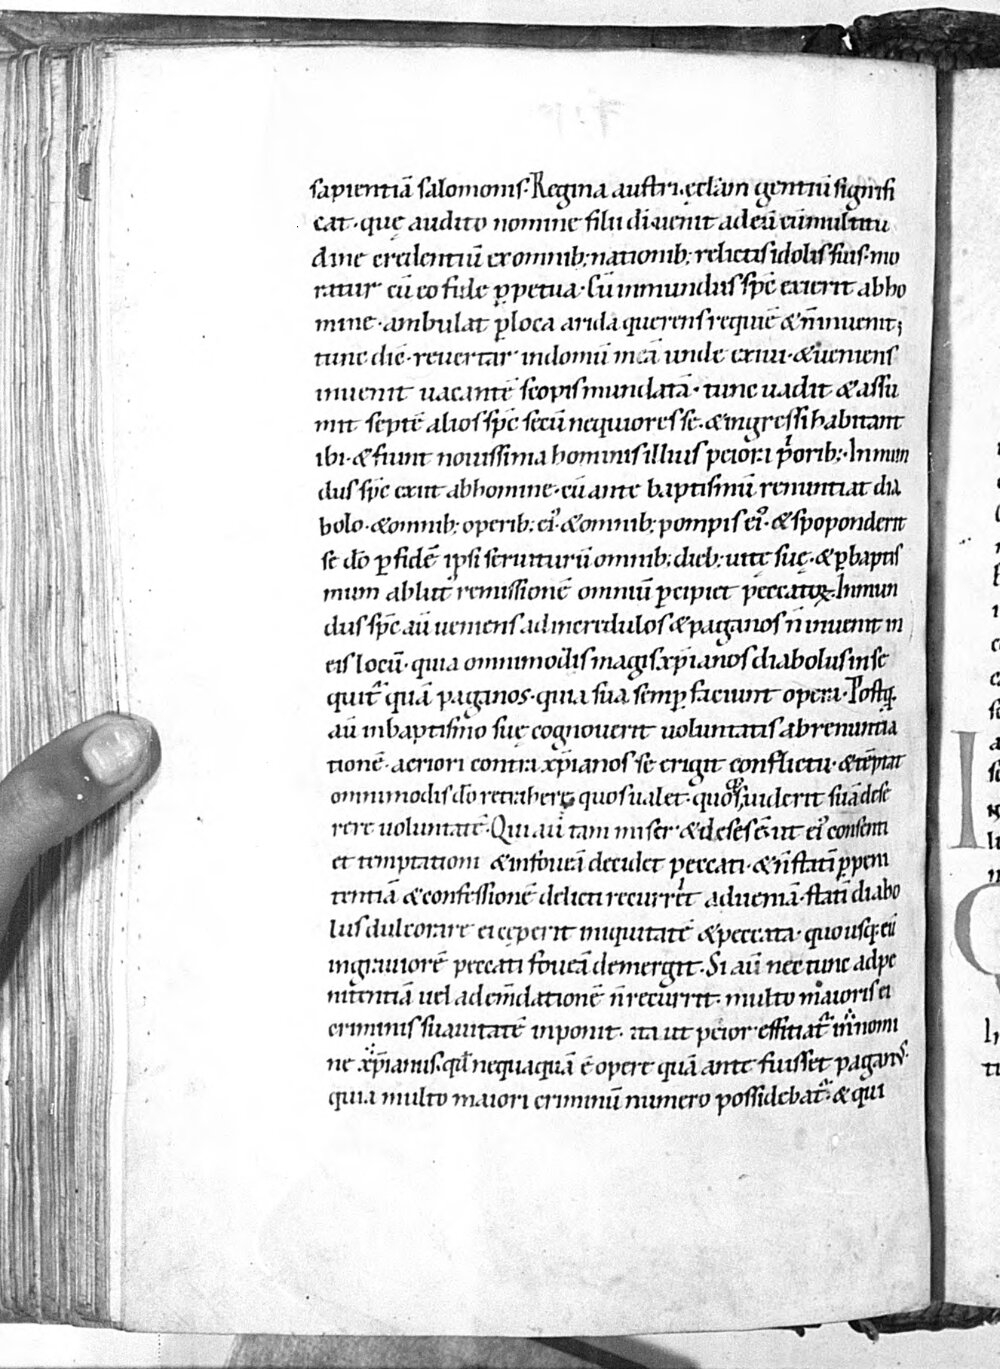 sapientiā salomonis. Regina austri. ęcł'am gentiū signifi
cat. quę audito nomine filii di. uenit ad eū cū multitu
dine credentiū ex omnib; nationib; relictis idolis suis. mo
ratur cū eo fide ꝑpetua. Cū inmundus sp̄c exierit ab ho
mine. ambulat ꝑ loca arida querens requiē & n̄ inuenit;
tunc dic̄. reuertar in domū meā unde exiui. & ueniens
inuenit uacantē scopis mundatā. tunc uadit & assu
mit septē alios sp̄c secū nequiores se. & ingressi habitant
ibi. & fiunt nouissima hominis illius peiora p̄orib;. Inmun
dus sp̄c exiit ab homine. cū ante baptismū renuntiat dia
bolo. & omnib; operib; ei'. & omnib; pompis ei'. & spoponderit
se do ꝑ fidē ipsi seruiturū omnib; dieb; uitę suę. & ꝑ baptis
mum ablut' remissionē omniū percipiet peccatoꝝ. Inmun
dus sp̄c aū ueniens ad incredulos & paganos n̄ inuenit in
eis locū. quia omnimodis magis xp̄ianos diabolus inse
quit' quā paganos. quia sua semꝑ faciunt opera. Postq̄
aū in baptismo suę cognouerit uoluntatis abrenuntia
tionē. acriori contra xp̄ianos se erigit conflictu. & tēptat
omnimodis do retrahere quos ualet. quos uiderit suā dese
rere uoluntatē. Qui aū tam miser & deses ē ut ei' consenti
et temptationi & in foueā decidet peccati. & n̄ statī ꝑ peni
tentiā & confessionē delicti recurrerit ad ueniā. statī diabo
lus dulcorare ei cęperit iniquitatē & peccata. quousq; eū
in grauiorē peccati foueā demergit. Si aū nec tunc ad pe
nitentiā uel ad emdationē n̄ recurrit. multo maioris ei
criminis suauitatē inponit. ita ut peior effitiat' in nomi
ne xp̄ianus. qđ nequaquā ē opere quā ante fuisset paganus.
quia multo maiori criminū numero possidebat'. & qui